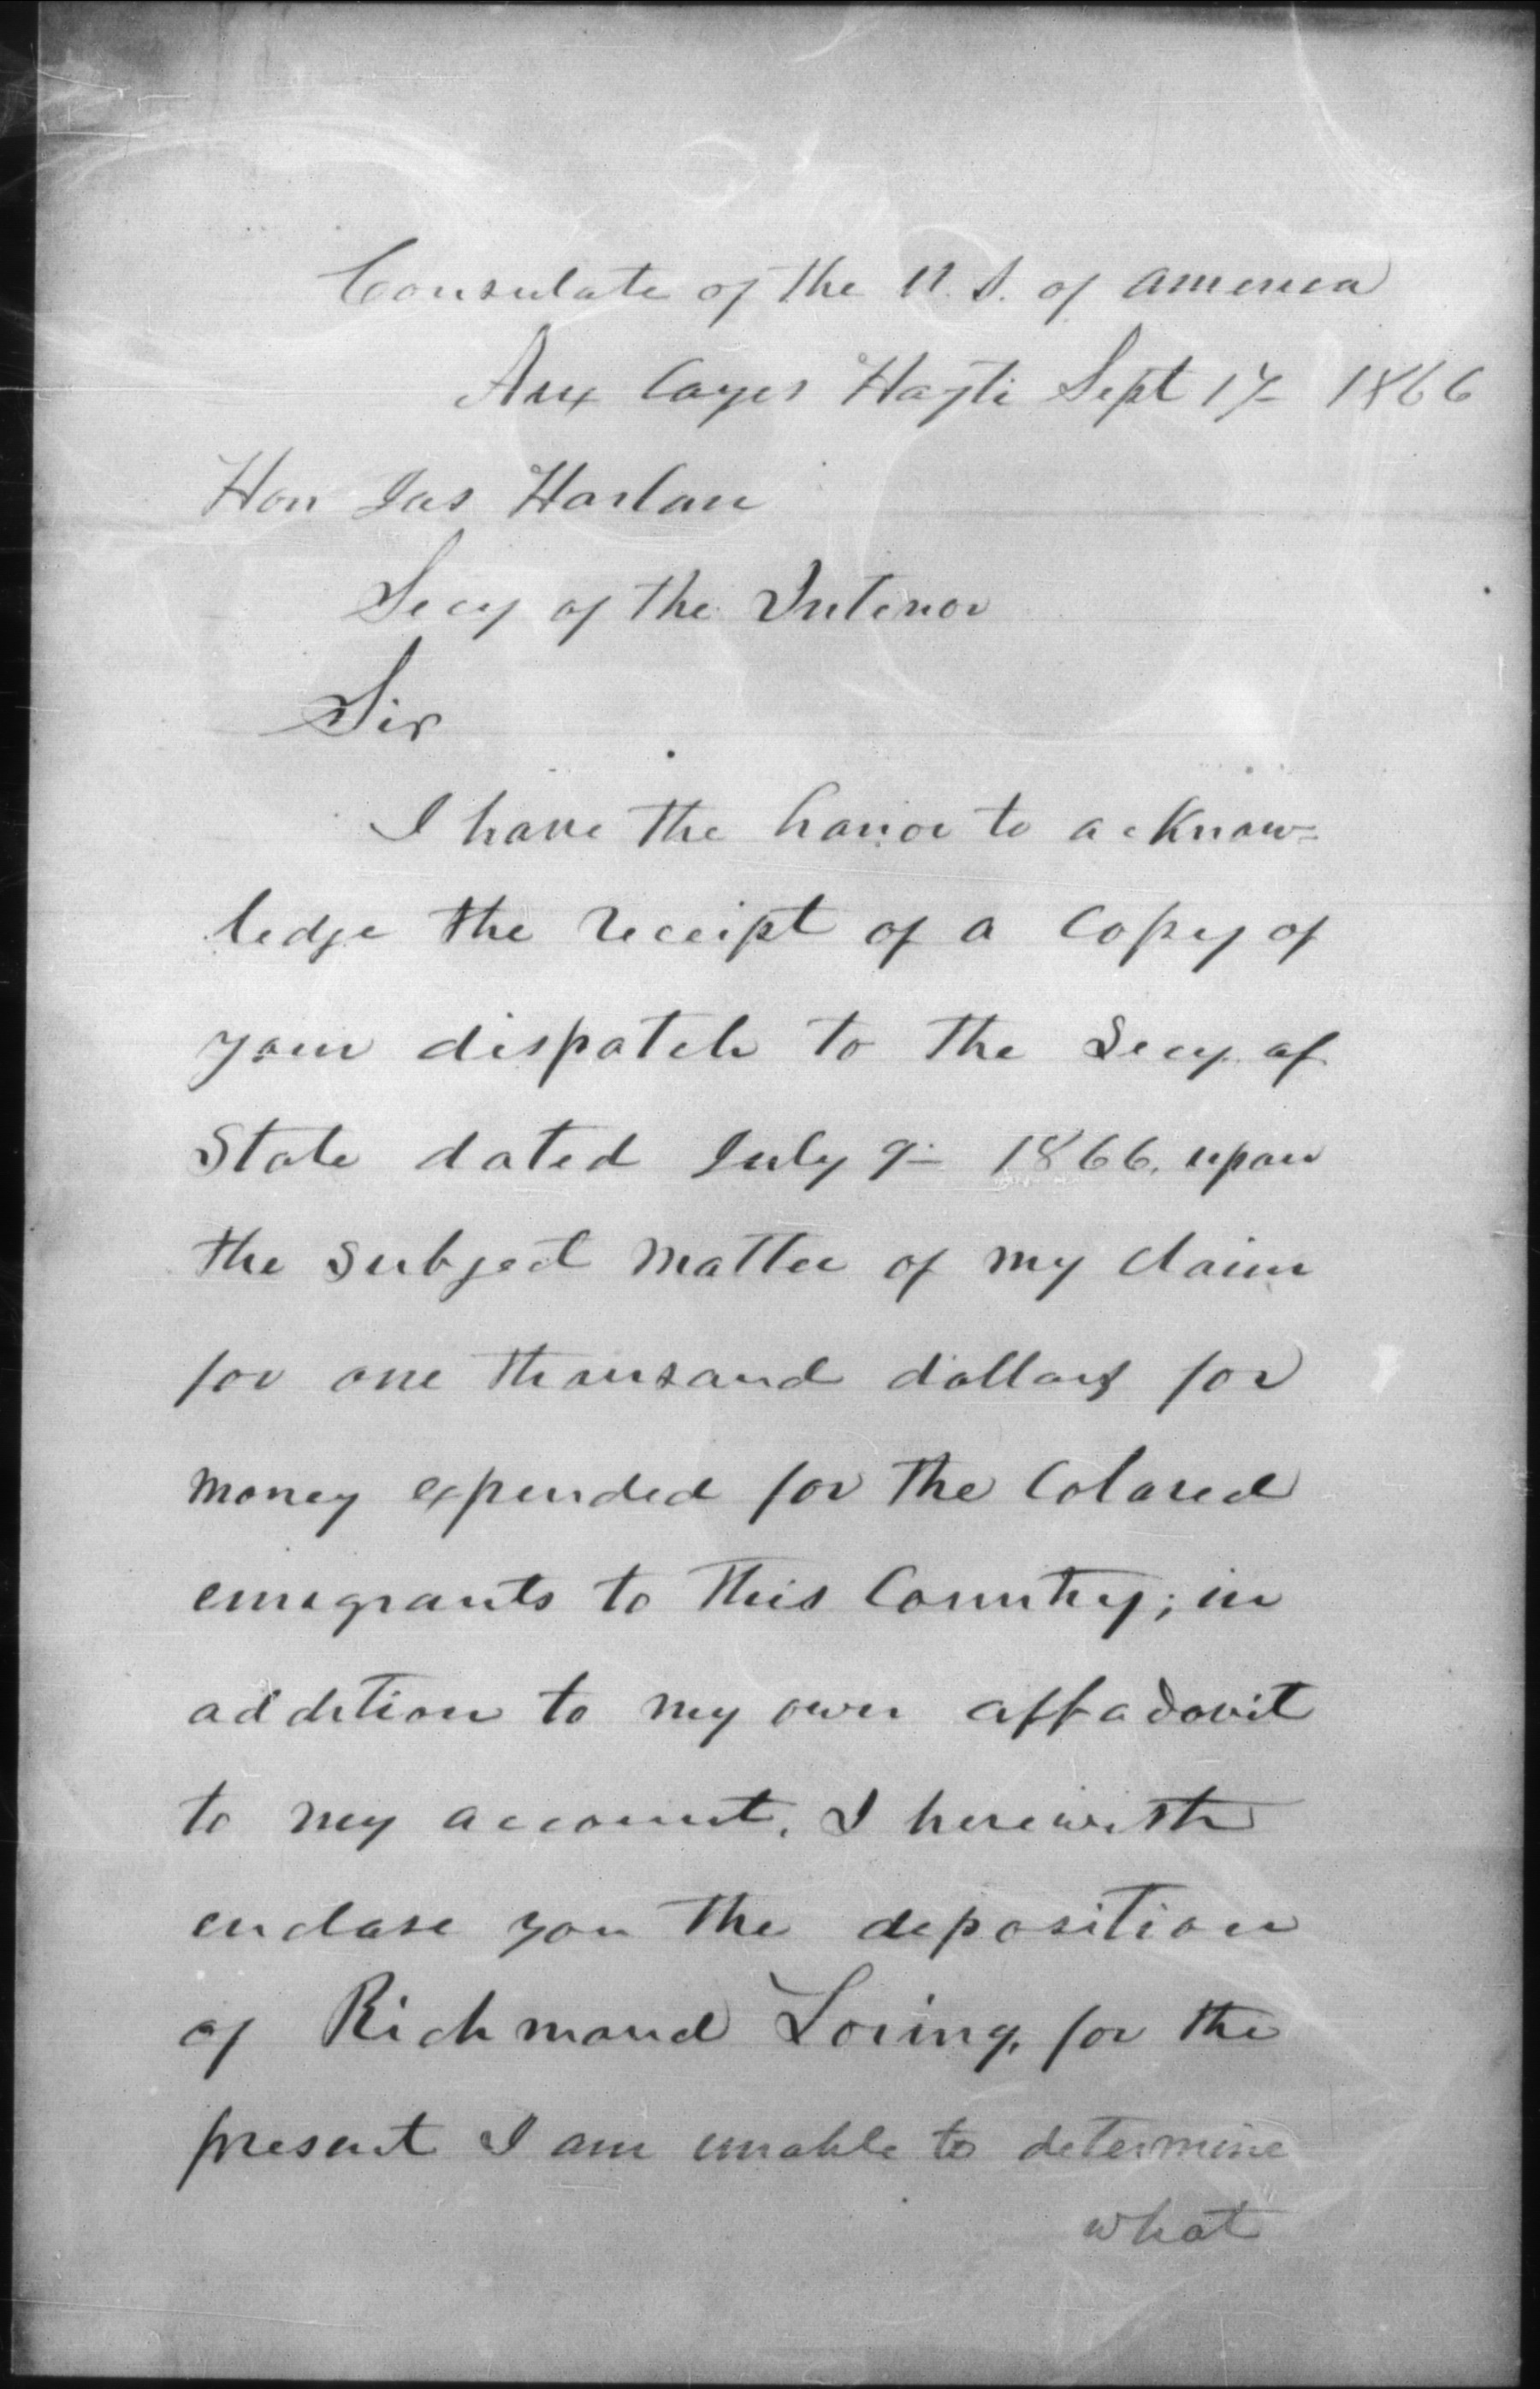 Consulate of the U. S. of America
Aux Cayes Hayti Sept 17 1866
Hon Jas Harlan
Secy of the Interior
Sir
I have the honor to acknow=
ledge the receipt of a copy of
your dispatch to the Secy of
State dated July 9- 1866, upon
the subject matter of my claim
for one thousand dollars for
money expended for the Colored
emigrants to this Country; in
addition to my own affadavit
to my account. I herewith
enclose you the deposition
of Richmond Loring, for the
present I am unable to determine
what